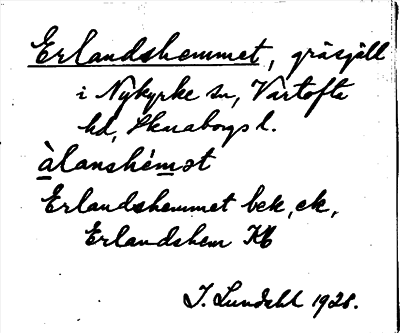 Erlandshemmet, gräsjäll
i Nykyrke sn, Vartofta
hd, Skaraborgs l.
àlanshémət
Erlandshemmet bek, ek,
Erlandshem Kb
I. Lundahl 1928.